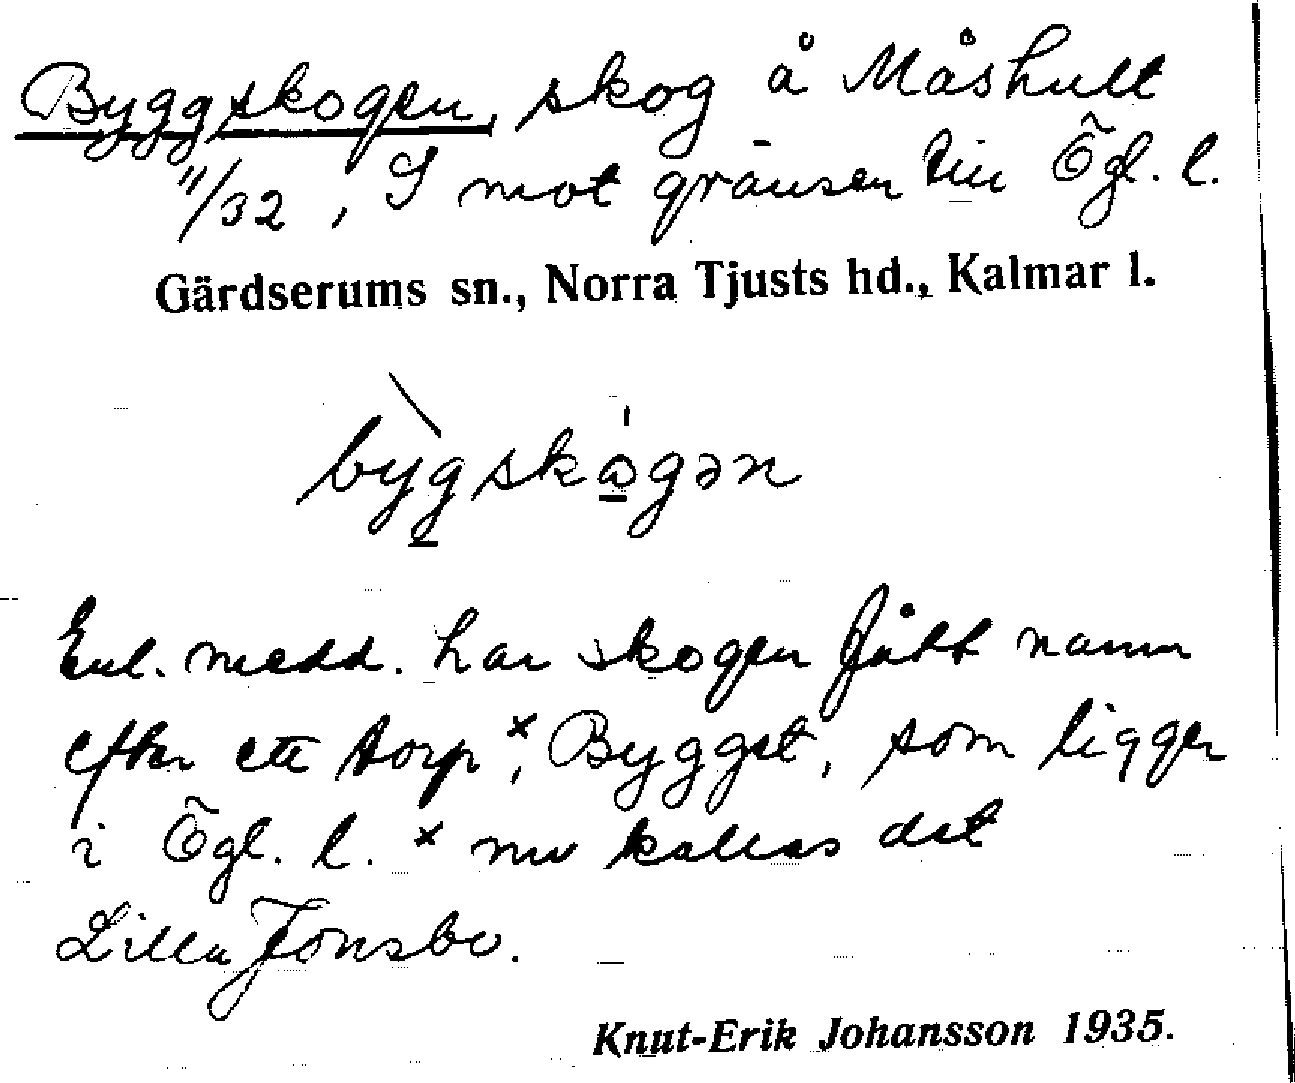 Byggskogen, skog å Måshult
11/32, I mot gränsen till Ögl. l.
Gärdserums sn., Norra Tjusts hd., Kalmar l.
bỳgskògən
Enl. medd. har skogen fått namn
efter ett torp ˣ, Bygget, som ligger
i Ögl. l. ˣ nu kallas det
Lilla Jonsbo.
Knut-Erik Johansson 1935.